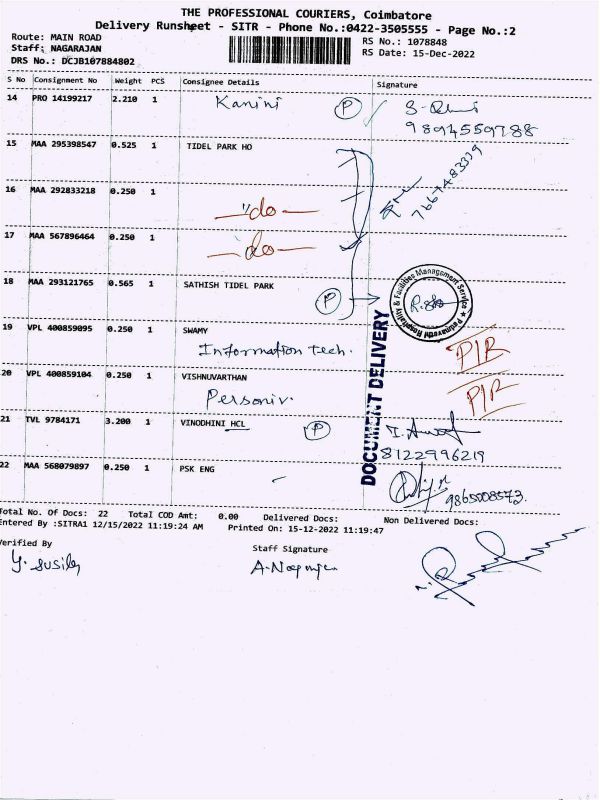 THE PROFESSIONAL COURIERS, Coimbatore
Delivery Runsheet - SITR - Phone No.:0422-3505555 - Page No.:2
Route: MAIN ROAD
RS No.: 1078848
Staff: NAGARAJAN
RS Date: 15-Dec-2022
DRS No.: DCJB107884802
S No Consignment No Weight PCS Consignee Details Signature
14 PRO 14199217 2.210 1 Kanini P
9894559788
15 MAA 295398547 0.525 1 TIDEL PARK HO
7667483339
16 MAA 292833218 0.250 1
"do
17 MAA 567896464 0.250 1
"do
18 MAA 293121765 0.565 1 SATHISH TIDEL PARK
P
& Facilities Management Service
DOCUMENT DELIVERY
19 VPL 400859095 0.250 1 SWAMY
Information tech.
P/R
20 VPL 400859104 0.250 1 VISHNUVARTHAN
P/R
21 TVL 9784171 3.200 1 VINODHINI HCL P
8122996219
22 MAA 568079897 0.250 1 PSK ENG
9865008573
Total No. Of Docs: 22 Total COD Amt: 0.00 Delivered Docs: Non Delivered Docs:
Entered By :SITRA1 12/15/2022 11:19:24 AM Printed On: 15-12-2022 11:19:47
Verified By
Staff Signature